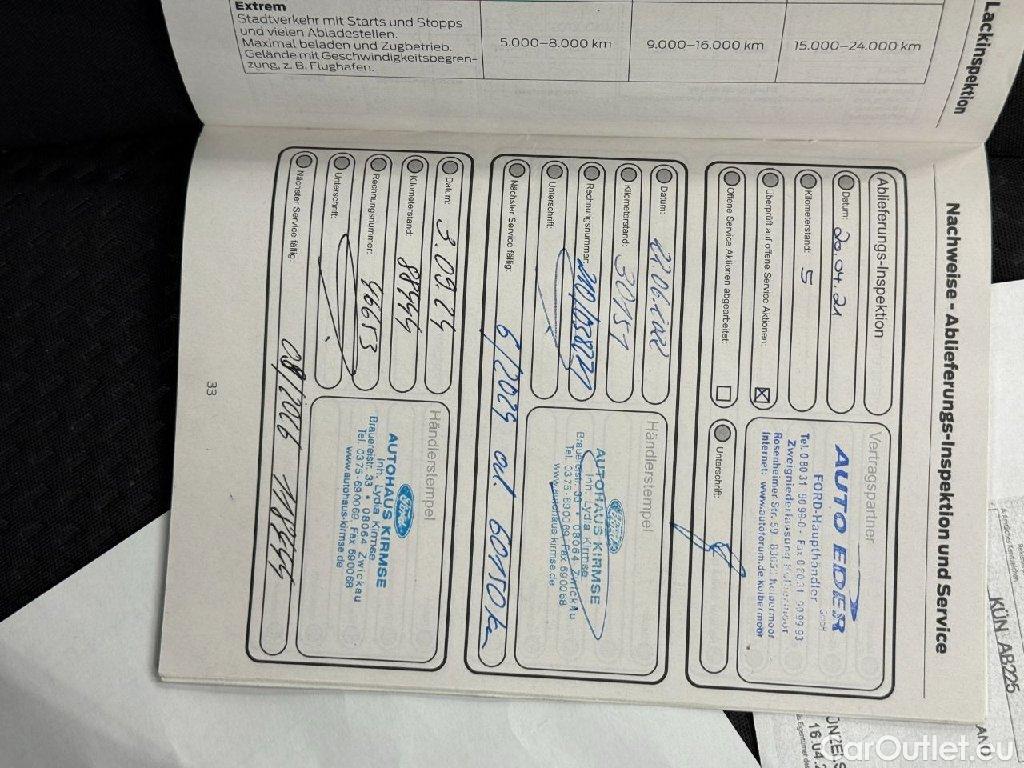 Extrem
Stadtverkehr mit Starts und Stopps
und vielen Abladestellen.
Maximal beladen und Zugbetrieb.
Gelände mit Geschwindigkeitsbegren-
zung, z. B. Flughafen.
5.000–8.000 km
9.000–16.000 km
15.000–24.000 km
Lackinspektion
Nachweise - Ablieferungs-Inspektion und Service
Ablieferungs-Inspektion
Datum: 20.04.21
Kilometerstand: 5
Überprüft auf offene Service Aktionen:
Offene Service Aktionen abgearbeitet:
Unterschrift:
Vertragspartner
AUTO EDER
FORD-Haupthändler
Tel. 08031 9099-0 · Fax 08031 9099 93
Zweigniederlassung Kolbermoor
Rosenheimer Str. 59 · 83059 Kolbermoor
Internet: www.autoforum.de/kolbermoor
Datum:
Kilometerstand: 30151
Rechnungsnummer:
Unterschrift:
Nächster Service fällig: 6/2023 od. 60150 km
Händlerstempel
Ford
AUTOHAUS KIRMSE
Inh. Lydia Kirmse
Brauereistr. 33 • 08064 Zwickau
Tel. 0375-690069, Fax 690068
www.autohaus-kirmse.de
Datum: 3.09.24
Kilometerstand: 88444
Rechnungsnummer: 46653
Unterschrift:
Nächster Service fällig: 08/2026 118444
Händlerstempel
Ford
AUTOHAUS KIRMSE
Inh. Lydia Kirmse
Brauereistr. 33 • 08064 Zwickau
Tel. 0375-690069, Fax 690068
www.autohaus-kirmse.de
33
KÜN AB225
16.04.2
CarOutlet.eu